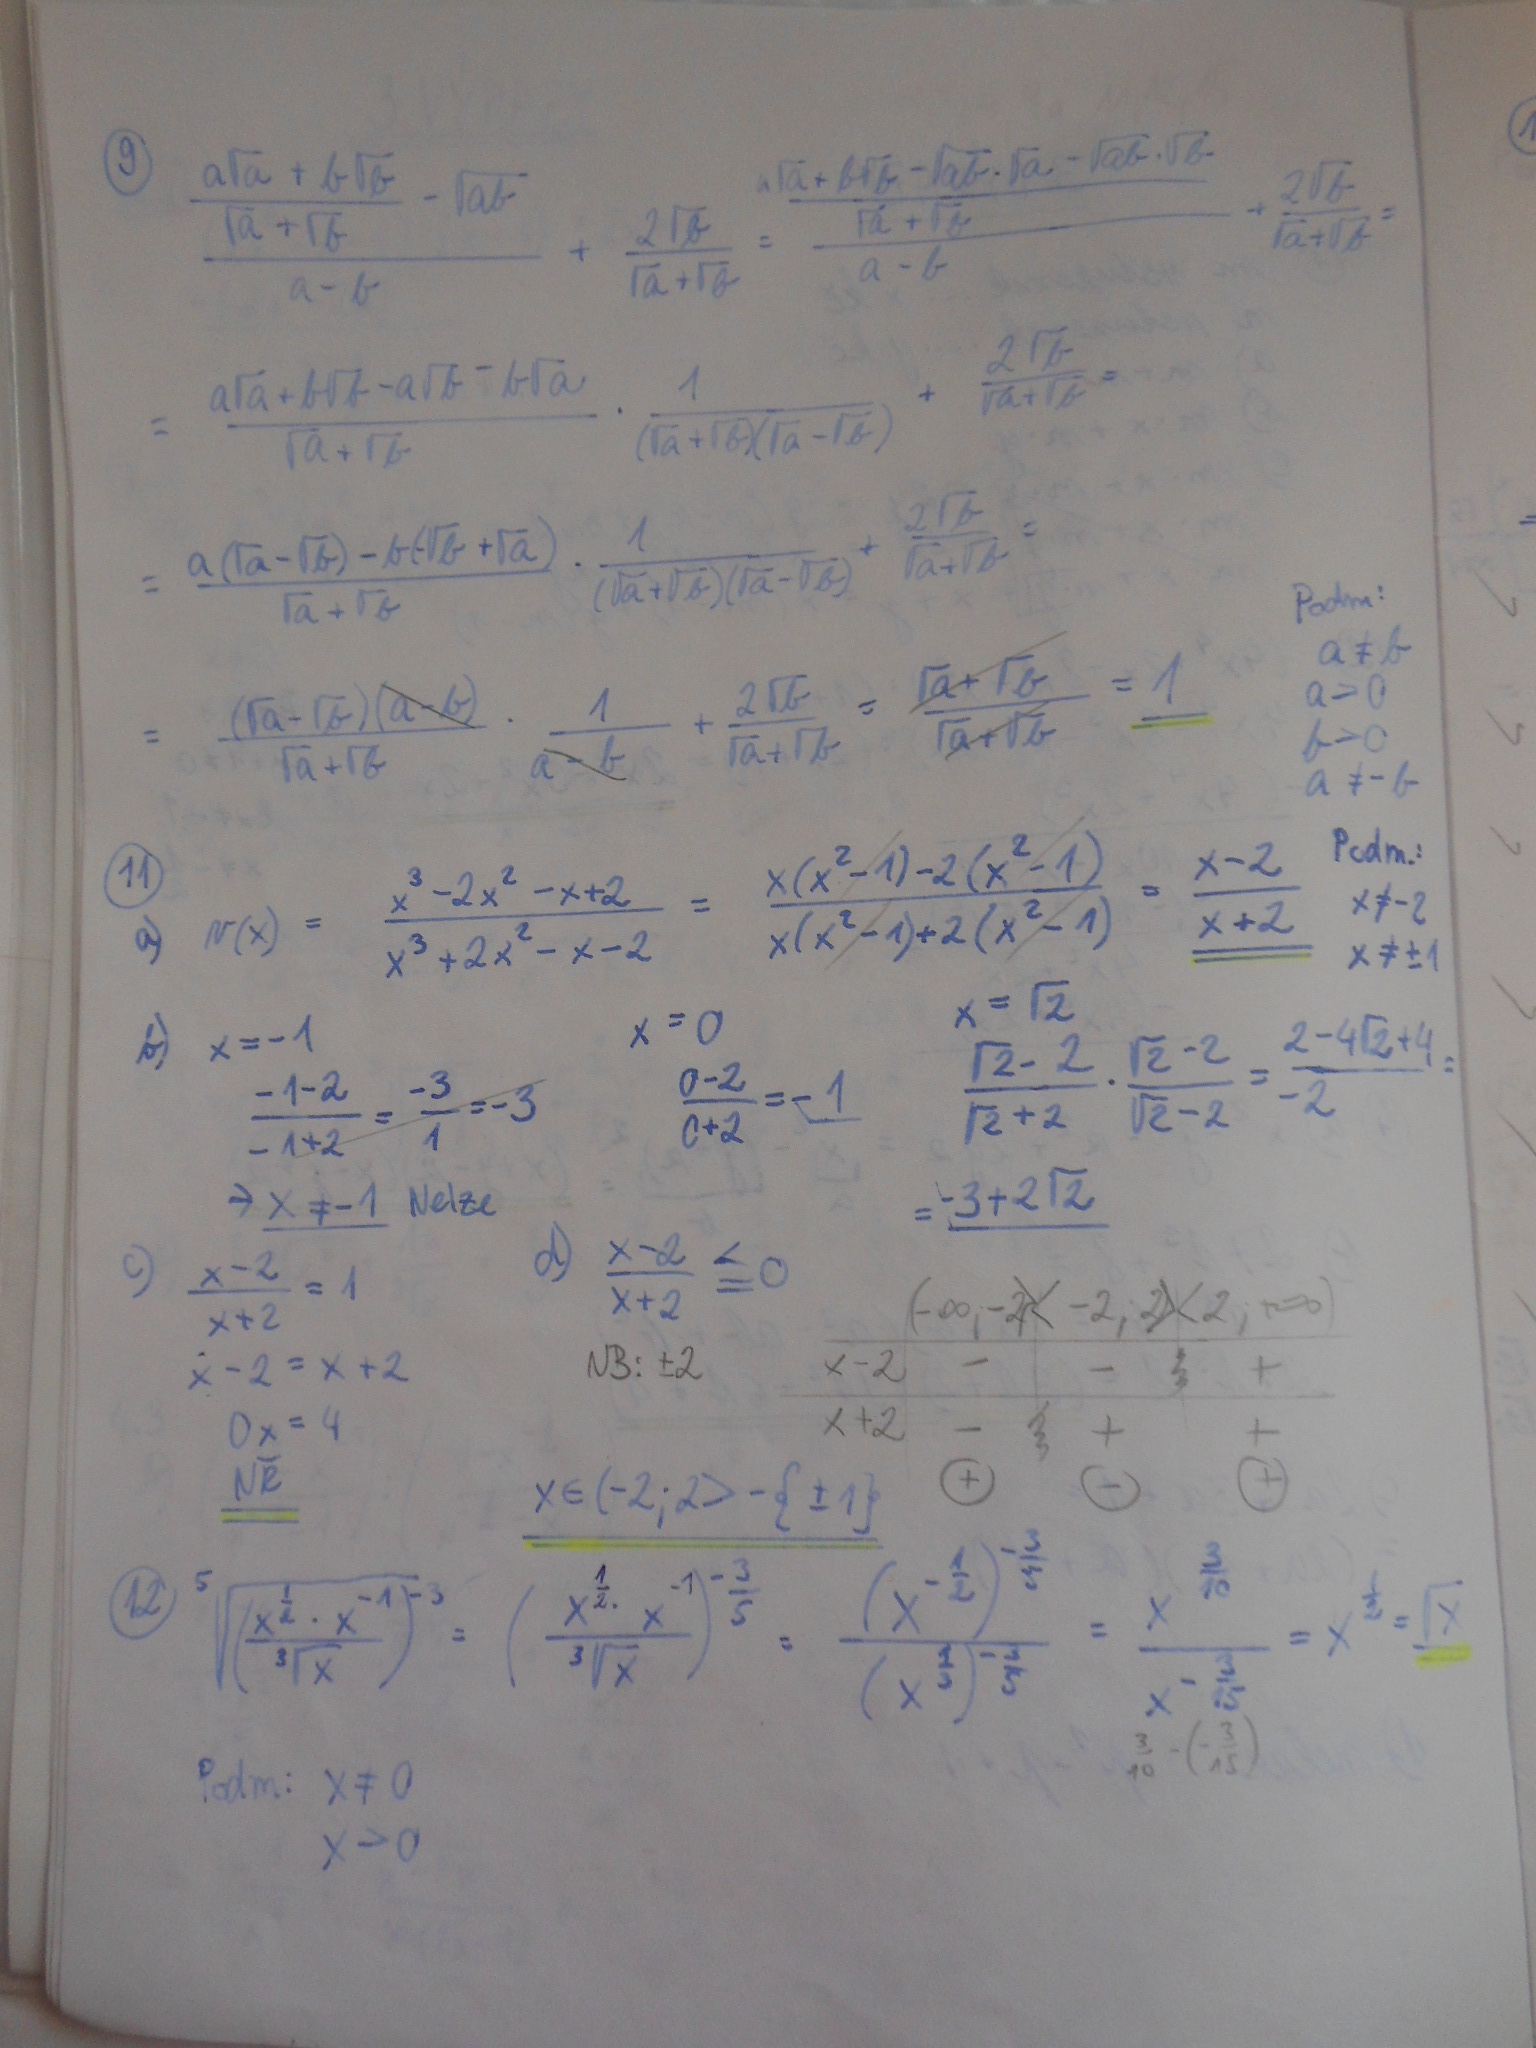 9
(a√a + b√b)/(√a + √b) - √ab / (a - b) + 2√b/(√a+√b) = (a√a + b√b - √ab·√a - √ab·√b)/(√a + √b) / (a - b) + 2√b/(√a+√b) =
= (a√a + b√b - a√b - b√a)/(√a + √b) · 1/((√a+√b)(√a-√b)) + 2√b/(√a+√b) =
= (a(√a-√b) - b(-√b+√a))/(√a + √b) · 1/((√a+√b)(√a-√b)) + 2√b/(√a+√b) =
= ((√a-√b)(a-b))/(√a+√b) · 1/(a-b) + 2√b/(√a+√b) = (√a+√b)/(√a+√b) = 1
Podm:
a ≠ b
a > 0
b > 0
a ≠ -b
11
a) V(x) = (x³ - 2x² - x + 2)/(x³ + 2x² - x - 2) = (x(x²-1) - 2(x²-1))/(x(x²-1) + 2(x²-1)) = (x-2)/(x+2)
Podm.:
x ≠ -2
x ≠ ±1
b) x = -1
(-1-2)/(-1+2) = -3/1 = -3
→ x ≠ -1 Nelze
x = 0
(0-2)/(0+2) = -1
x = √2
(√2-2)/(√2+2) · (√2-2)/(√2-2) = (2-4√2+4)/-2 =
= -3+2√2
c) (x-2)/(x+2) = 1
x - 2 = x + 2
0x = 4
NŘ
d) (x-2)/(x+2) ≤ 0
NB: ±2
(-∞; -2)< -2; 2)<2; +∞)
x-2 - - +
x+2 - + +
+ - +
x ∈ (-2; 2> - {±1}
12
⁵√((x^(1/2) · x^(-1))/³√x)^(-3) = ((x^(1/2) · x^(-1))/³√x)^(-3/5) = (x^(-1/2))^(-3/5)/(x^(1/3))^(-3/5) = x^(3/10)/x^(-3/15) = x^(1/2) = √x
3/10 - (-3/15)
Podm: x ≠ 0
x > 0